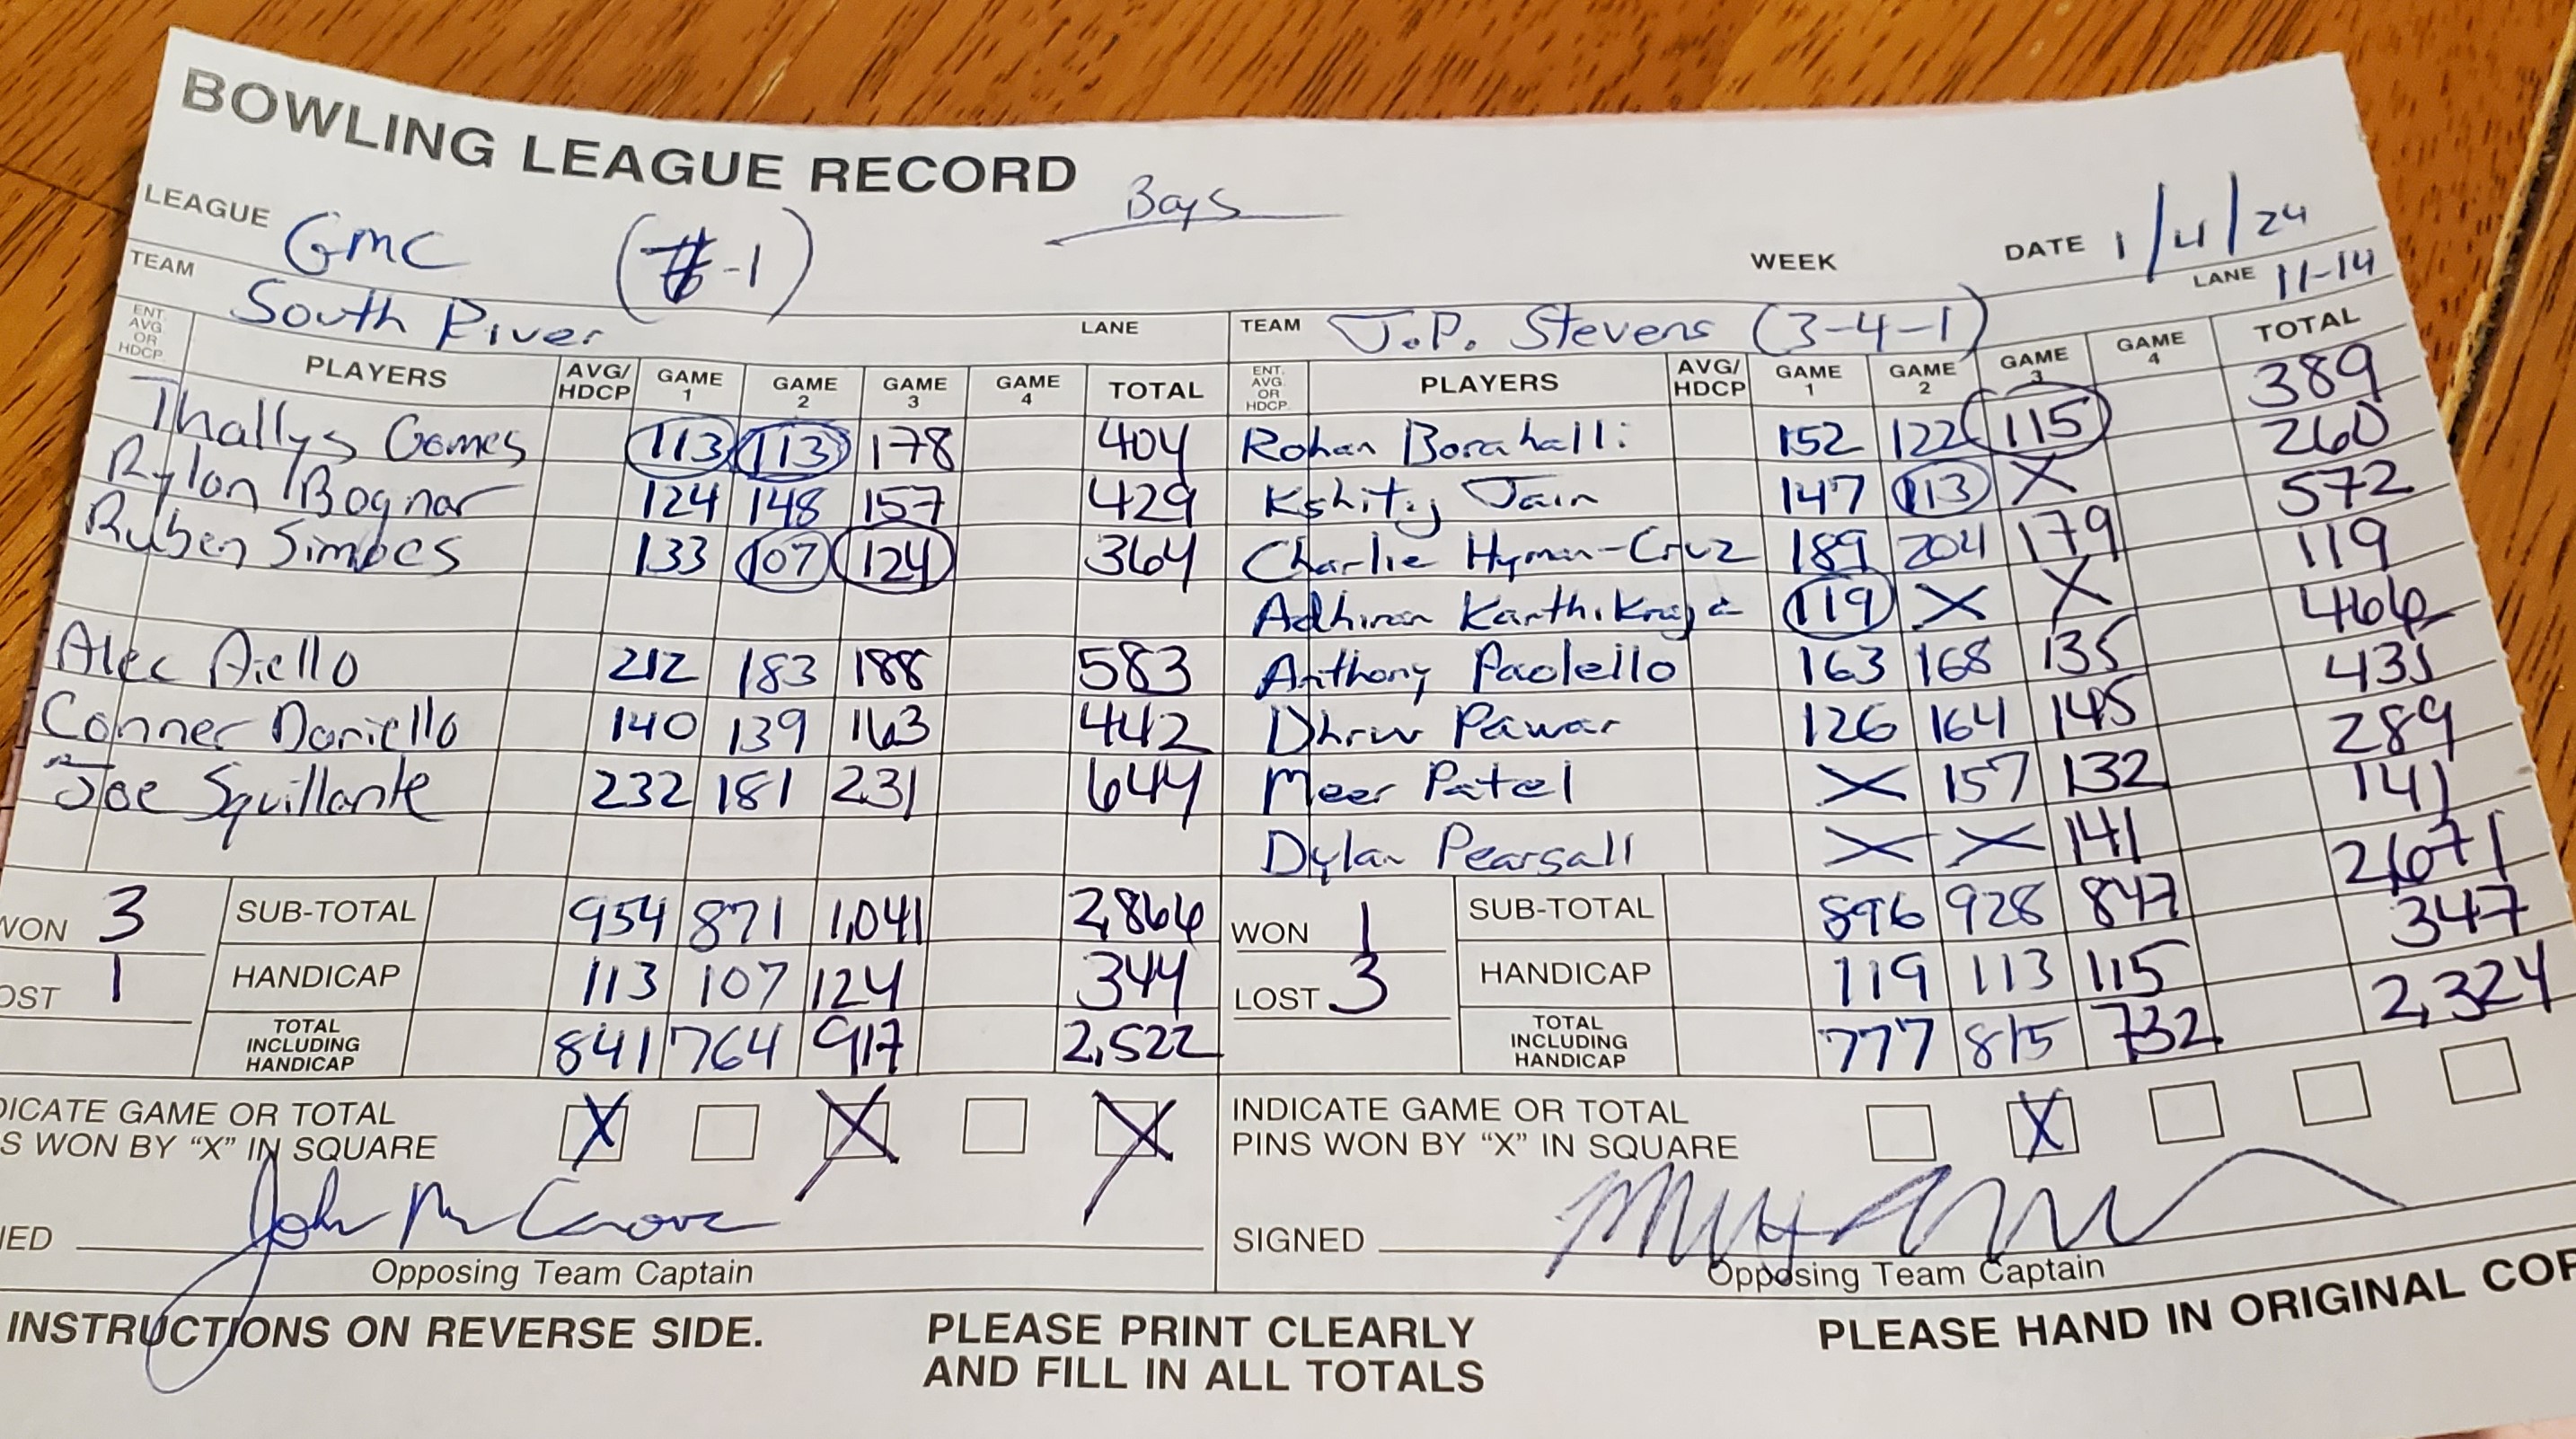 BOWLING LEAGUE RECORD
Boys
LEAGUE GMC (#-1) WEEK DATE 1/4/24
TEAM South River LANE TEAM J.P. Stevens (3-4-1) LANE 11-14
ENT. AVG. OR HDCP. PLAYERS AVG/ HDCP GAME 1 GAME 2 GAME 3 GAME 4 TOTAL ENT. AVG. OR HDCP. PLAYERS AVG/ HDCP GAME 1 GAME 2 GAME 3 GAME 4 TOTAL
Thallys Gomes 113 113 178 404 Rohan Borahalli 152 122 115 389
Rylan Bognar 124 148 157 429 Kshitij Jain 147 113 X 260
Ruben Simoes 133 107 124 364 Charlie Hyman-Cruz 189 204 179 572
Adhiran 119 X X 119
Alec Aiello 212 183 188 583 Anthony Paolello 163 168 135 466
Conner Doniello 140 139 163 442 Dhruv Pawar 126 164 145 435
Joe Squillante 232 181 231 644 Meer Patel X 157 132 289
Dylan Pearsall X X 141 141
WON 3 SUB-TOTAL 954 871 1,041 2,866 WON 1 SUB-TOTAL 896 928 847 2,671
OST 1 HANDICAP 113 107 124 344 LOST 3 HANDICAP 119 113 115 347
TOTAL INCLUDING HANDICAP 841 764 917 2,522 TOTAL INCLUDING HANDICAP 777 815 732 2,324
DICATE GAME OR TOTAL X X X INDICATE GAME OR TOTAL X
S WON BY "X" IN SQUARE PINS WON BY "X" IN SQUARE
NED John SIGNED
Opposing Team Captain Opposing Team Captain
INSTRUCTIONS ON REVERSE SIDE. PLEASE PRINT CLEARLY PLEASE HAND IN ORIGINAL COP
AND FILL IN ALL TOTALS